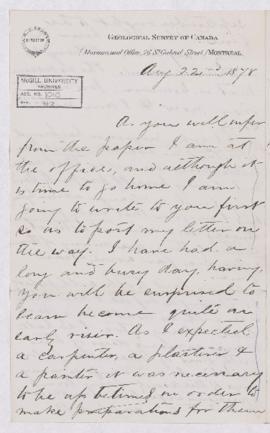 GEOLOGICAL SURVEY OF CANADA
Museum and Office, 76 St. Gabriel Street, MONTREAL
Aug 22nd 1878
McGILL UNIVERSITY
ARCHIVES
ACC. NO. 1010
REF.
As you will infer
from the paper I am at
the office, and although it
is time to go home I am
going to write to you first
so as to post my letter on
the way. I have had a
long and busy day, having
you will be surprised to
learn become quite an
early riser. As I expected
a carpenter, a plasterer &
a painter it was necessary
to be up betimes in order to
make preparations for them